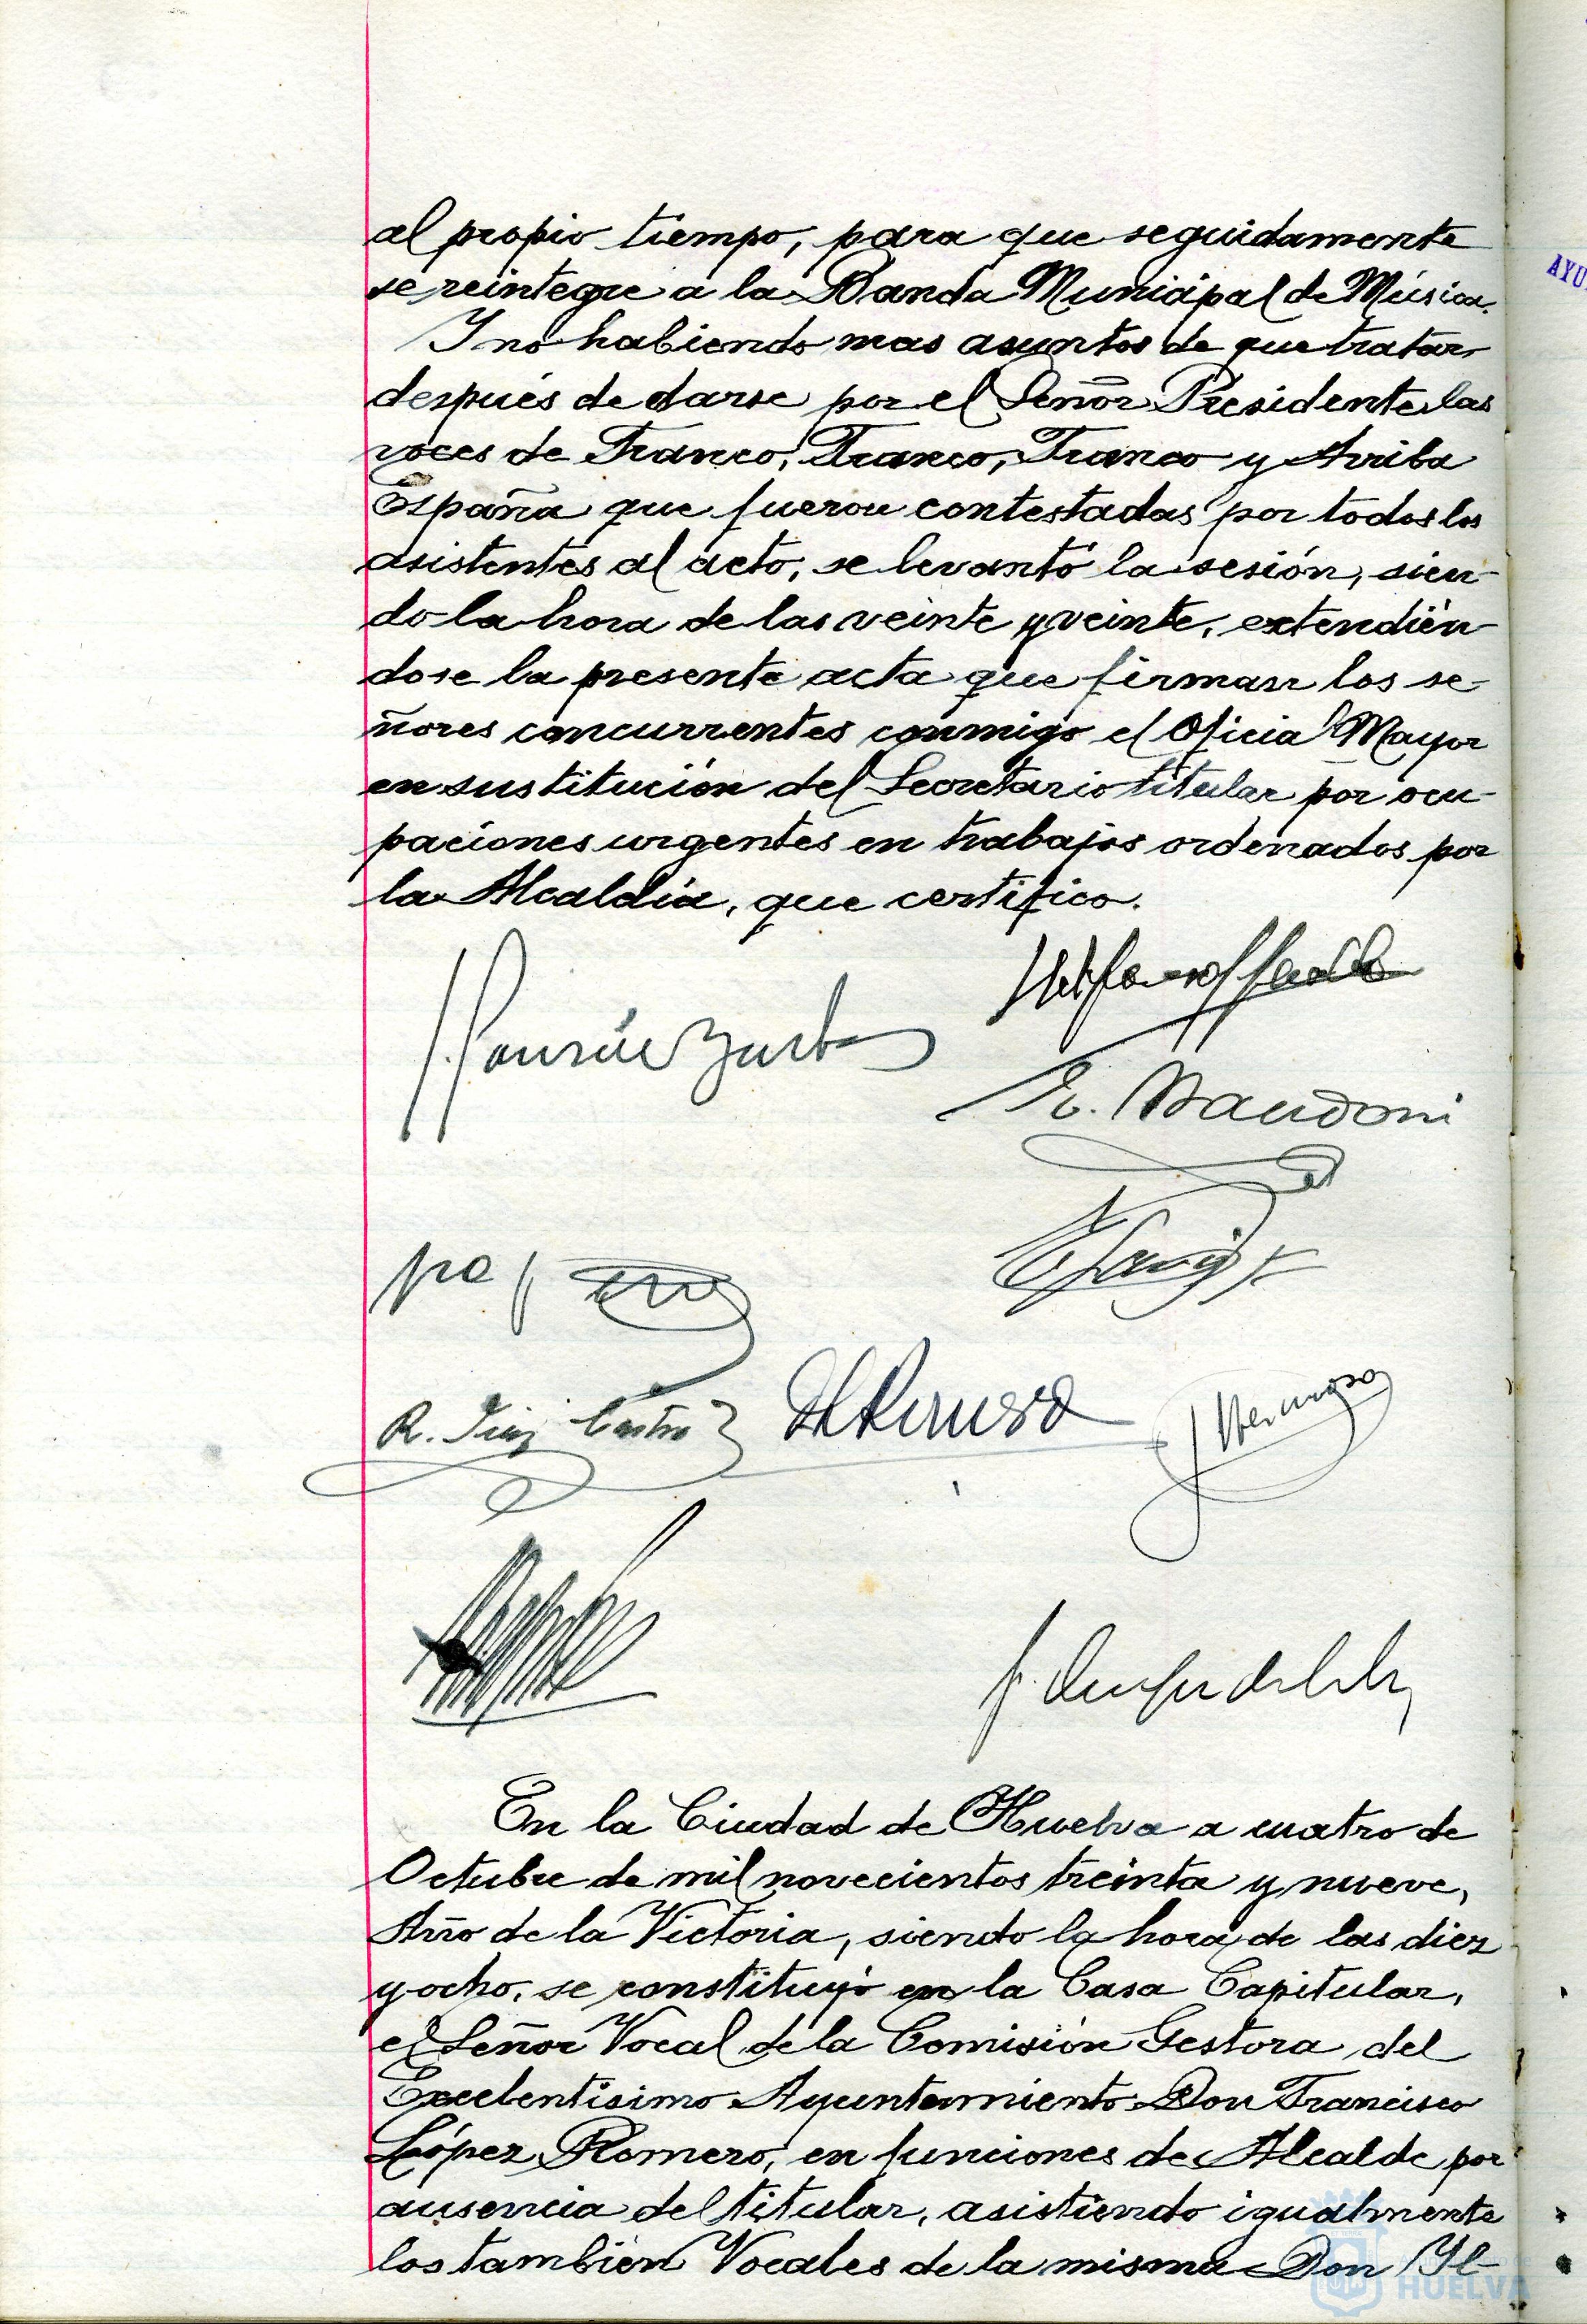 al propio tiempo, para que seguidamente
se reintegre a la Banda Municipal de Música.
Y no habiendo mas asuntos de que tratar
después de darse por el Señor Presidente las
voces de Franco, Franco, Franco y Arriba
España que fueron contestadas por todos los
asistentes al acto, se levantó la sesión, sien-
do la hora de las veinte y veinte, extendién-
dose la presente acta que firman los se-
ñores concurrentes conmigo el Oficial Mayor
en sustitución del Secretario titular por ocu-
paciones urgentes en trabajos ordenados por
la Alcaldía, que certifico.
R. Díaz Castro
En la Ciudad de Huelva a cuatro de
Octubre de mil novecientos treinta y nueve,
Año de la Victoria, siendo la hora de las diez
y ocho, se constituyó en la Casa Capitular,
el Señor Vocal de la Comisión Gestora del
Excelentísimo Ayuntamiento Don Francisco
López Romero, en funciones de Alcalde por
ausencia del titular, asistiendo igualmente
los también Vocales de la misma Don Il-
HUELVA
AYU